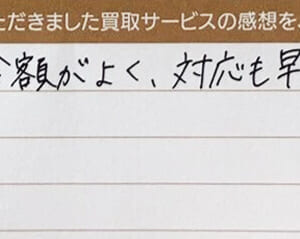 ただきました買取サービスの感想を
金額がよく、対応も早